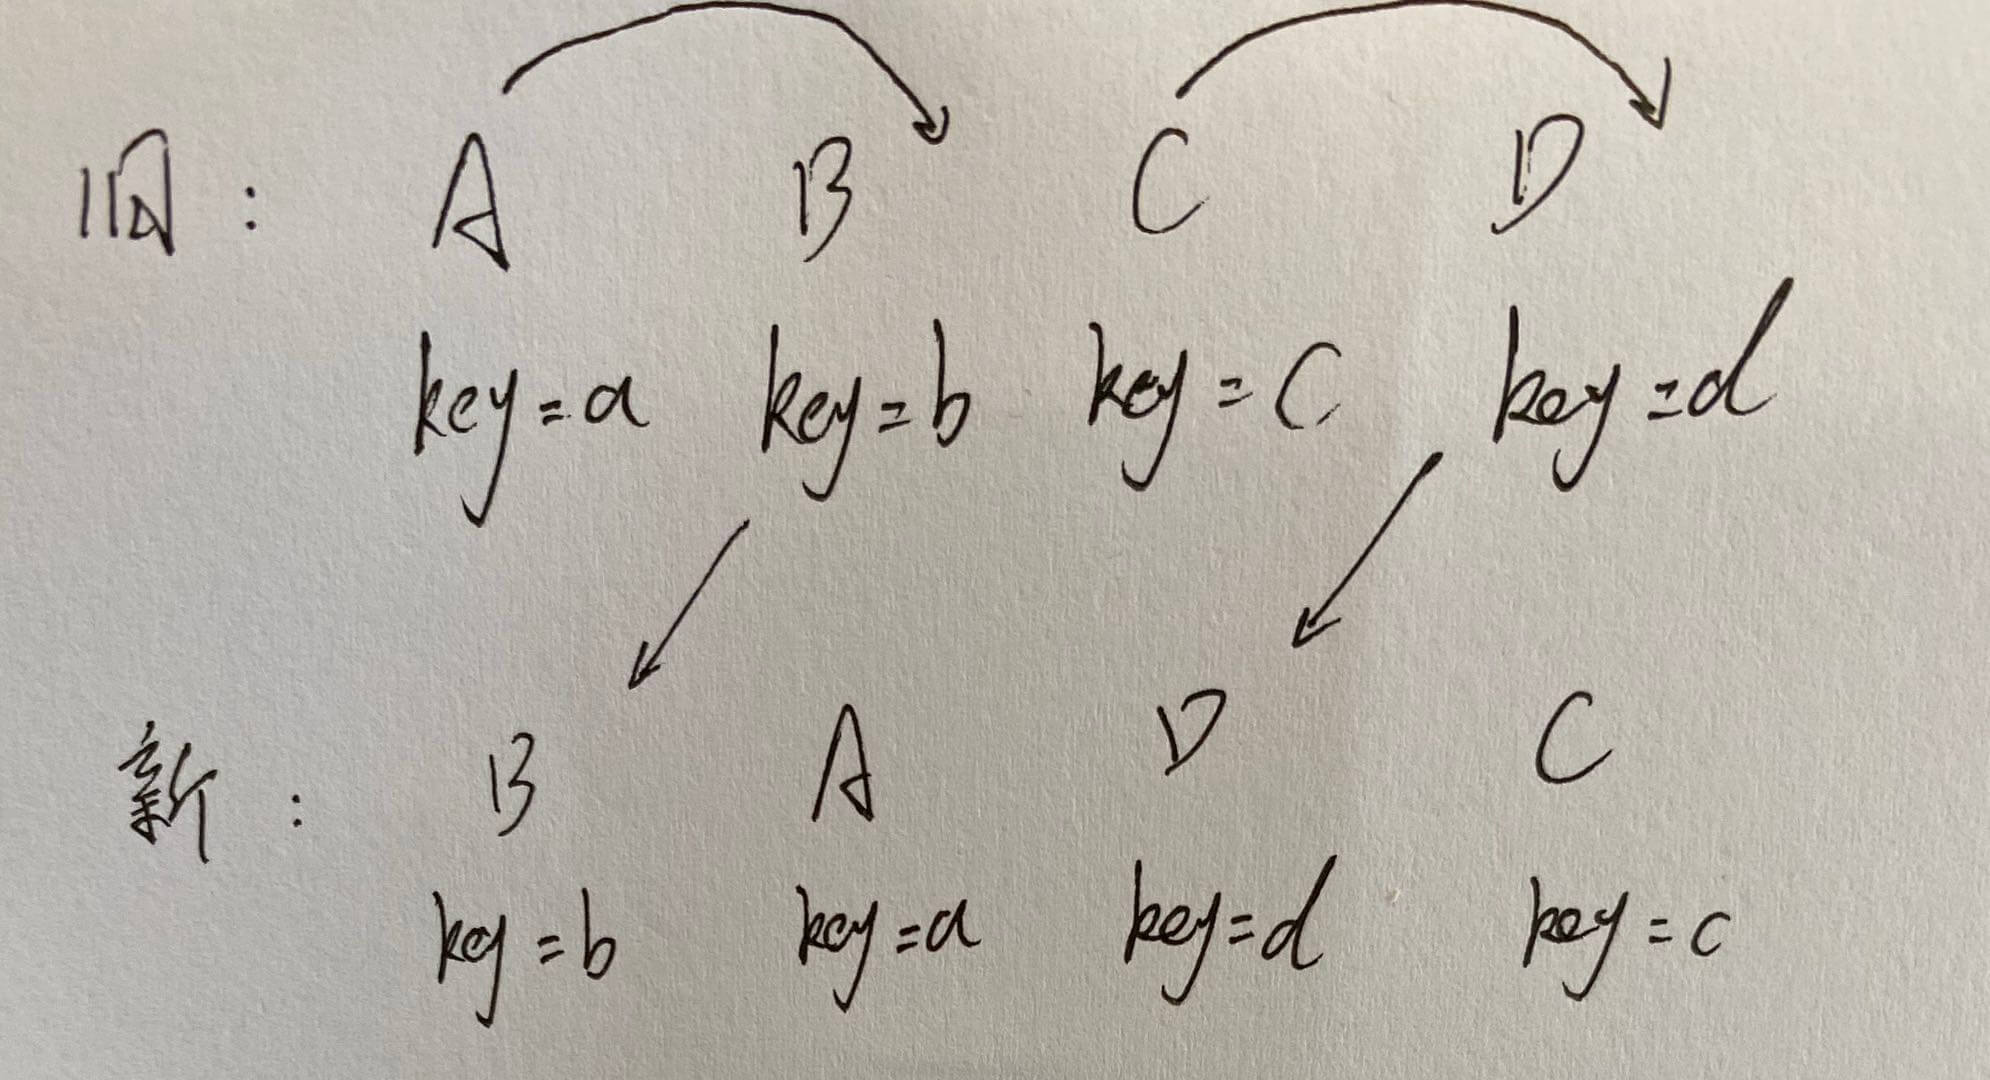 旧: A B C D
key=a key=b key=c key=d
新: B A D C
key=b key=a key=d key=c